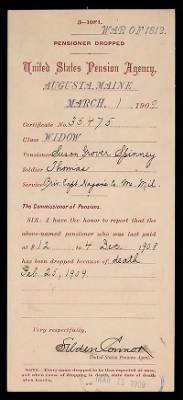 3-1081.
WAR OF 1812.
PENSIONER DROPPED
United States Pension Agency,
AUGUSTA, MAINE
MARCH, 1 1909
Certificate No. 35475
Class WIDOW
Pensioner Susan Grover Spinney
Soldier Thomas
Service Priv. Capt. Co. Me. Mil.
The Commissioner of Pensions.
SIR: I have the honor to report that the
above-named pensioner who was last paid
at $12, to 4 Dec, 1908
has been dropped because of death
Feb. 25, 1909.
Very respectfully,
Selden Connor
United States Pension Agent.
NOTE.—Every name dropped to be thus reported at once,
and when cause of dropping is death, state date of death
when known.
MAR 12 1909